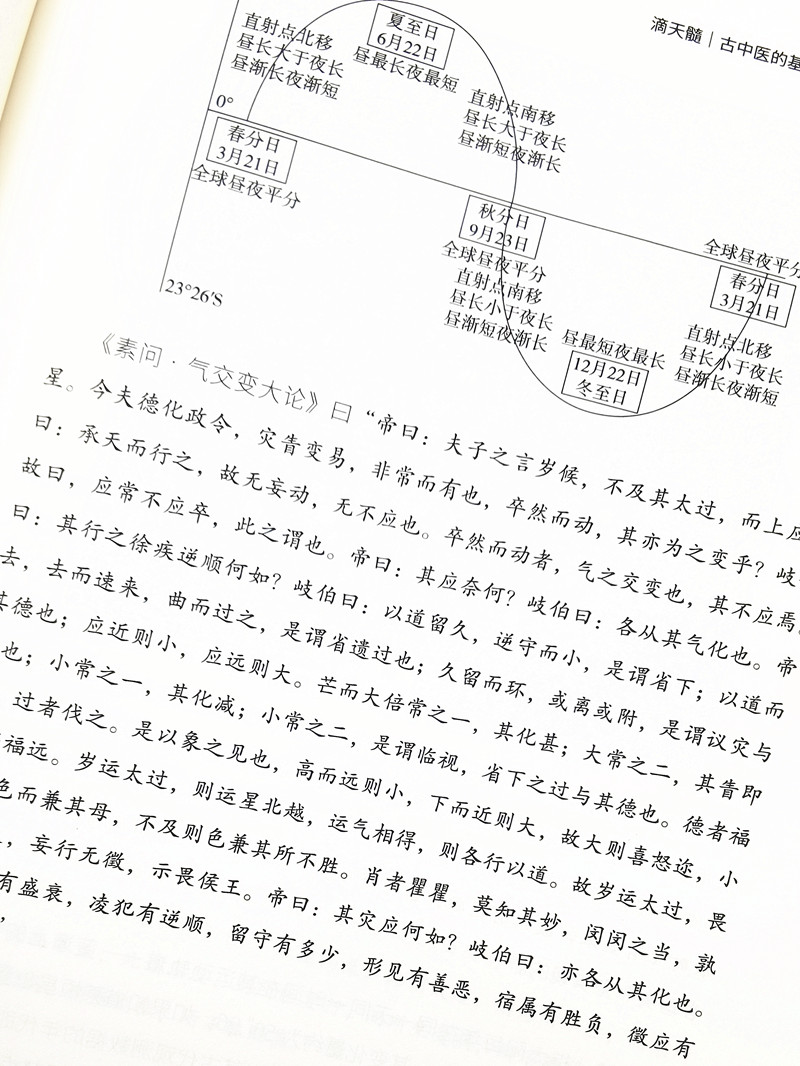 滴天髓｜古中医的基
直射点北移
昼长大于夜长
昼渐长夜渐短
夏至日
6月22日
昼最长夜最短
直射点南移
昼长大于夜长
昼渐短夜渐长
0°
春分日
3月21日
全球昼夜平分
秋分日
9月23日
全球昼夜平分
直射点南移
昼长小于夜长
昼渐短夜渐长
全球昼夜平分
春分日
3月21日
23°26′S
昼最短夜最长
12月22日
冬至日
直射点北移
昼长小于夜长
昼渐长夜渐短
《素问·气交变大论》曰“帝曰：夫子之言岁候，不及其太过，而上应
星。今夫德化政令，灾眚变易，非常而有也，卒然而动，其亦为之变乎？岐
曰：承天而行之，故无妄动，无不应也。卒然而动者，气之交变也，其不应焉。
故曰，应常不应卒，此之谓也。帝曰：其应奈何？岐伯曰：各从其气化也。帝
曰：其行之徐疾逆顺何如？岐伯曰：以道留久，逆守而小，是谓省下；以道而
去，去而速来，曲而过之，是谓省遗过也；久留而环，或离或附，是谓议灾与
其德也；应近则小，应远则大。芒而大倍常之一，其化甚；大常之二，其眚即
也；小常之一，其化减；小常之二，是谓临视，省下之过与其德也。德者福
过者伐之。是以象之见也，高而远则小，下而近则大，故大则喜怒迩，小
福远。岁运太过，则运星北越，运气相得，则各行以道。故岁运太过，畏
色而兼其母，不及则色兼其所不胜。肖者瞿瞿，莫知其妙，闵闵之当，孰
，妄行无徵，示畏侯王。帝曰：其灾应何如？岐伯曰：亦各从其化也。
有盛衰，凌犯有逆顺，留守有多少，形见有善恶，宿属有胜负，徵应有